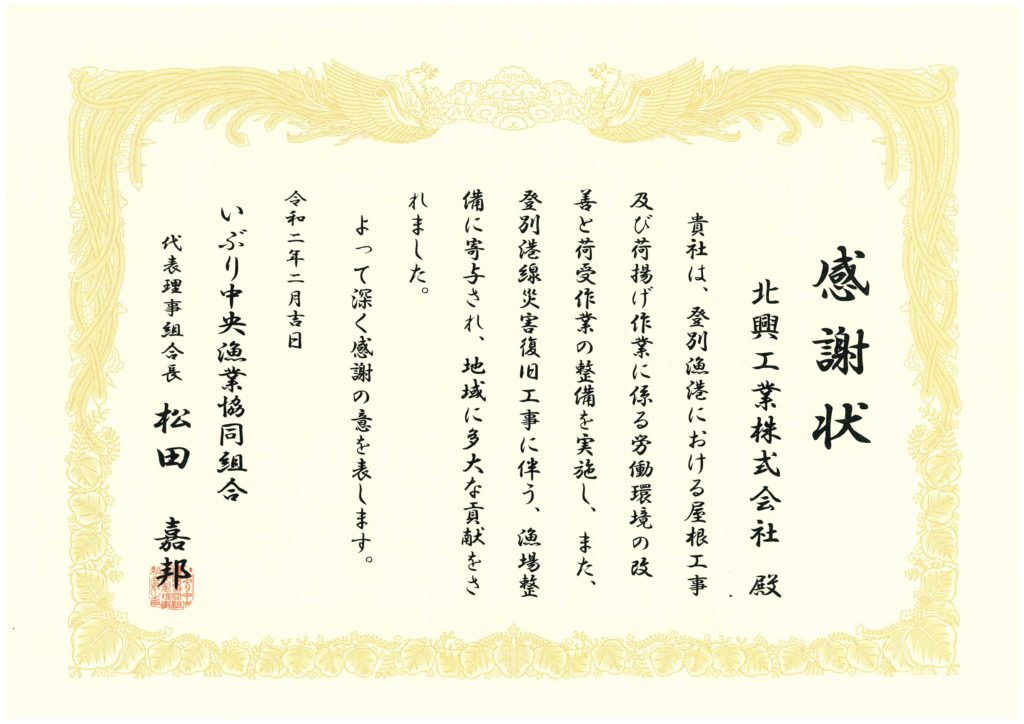 感謝状
北興工業株式会社 殿
貴社は、登別漁港における屋根工事
及び荷揚げ作業に係る労働環境の改
善と荷受作業の整備を実施し、また、
登別港線災害復旧工事に伴う、漁場整
備に寄与され、地域に多大な貢献をさ
れました。
よって深く感謝の意を表します。
令和二年二月吉日
いぶり中央漁業協同組合
代表理事組合長 松田 嘉邦